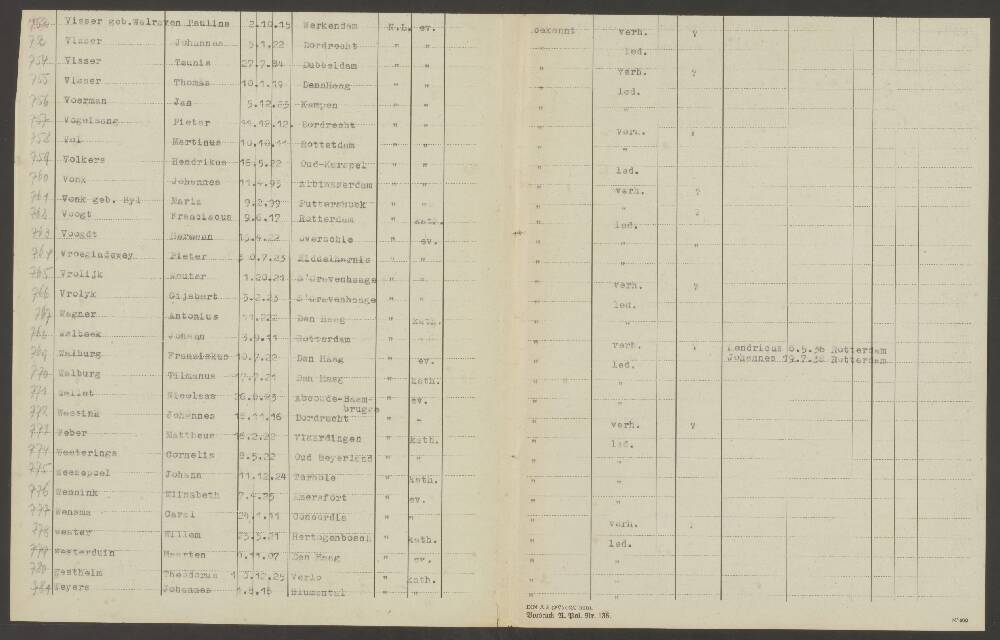 752 Visser geb.Walraven Pauline 2.10.15 Werkendam N.L. ev. bekannt verh. ?
753 Visser Johannes 5.1.22 Dordrecht " " led.
754 Visser Teunis 27.7.84 Dubbeldam " " " verh. ?
755 Visser Thomas 10.1.19 DennHaag " " " led.
756 Voerman Jan 5.12.23 Kampen " " " "
757 Vogelsang Pieter 11.12.12. Dordrecht " " " verh. ?
758 Vol Martinus 10.10.11 Rottetdam " " " "
759 Volkers Hendrikus 16.5.22 Oud-Karspel " " " led.
760 Vonk Johannes 11.4.95 Alblasserdam " " " verh. ?
761 Vonk geb. Ryl Maria 9.2.99 Puttershoek " " " " ?
762 Voogt Franciscus 9.6.17 Rotterdam " kath. " led.
763 Voogdt Hermann 15.4.22 overschie " ev. " " "
764 Vroegindewey Pieter 30.7.23 Middelharnis " " " "
765 Vrolijk Wouter 1.20.21 s'Gravenhaage " " " verh. ?
766 Vrolyk Gijsbert 5.2.23 s'Gravenhaage " " " led.
767 Wagner Antonius 11.222 Den Haag " kath. " "
768 Walbeek Johann 3.9.11 Rotterdam " " verh. ? Hendricus 6.5.36 Rotterdam
Johannes 19.7.38 Rotterdam
769 Walburg Franziskus 10.7.22 Den Haag " ev. " led.
770 Walburg Tilmanus 17.7.21 Den Haag " kath. " "
771 Wallet Nicolaas 26.6.23 Abcoude-Baam- " ev. " "
brugge
772 Wassink Johannes 15.11.16 Dordrecht " " " verh. ?
773 Weber Mattheus 16.2.22 Vlaardingen " kath. " led.
774 Weeteringe Cornelis 8.5.22 Oud Beyerland " " " "
775 Weezepoel Johann 11.12.24 " kath. " "
776 Wennink Elisabeth 7.4.25 Amersfort " ev. " "
777 Wensma Carel 24.1.11 Concordia " " " verh. ?
778 Wester Willem 23.3.21 Hertogenbosch " kath. " led.
779 Westerduin Maarten 6.11.07 Den Haag " ev. " "
780 Westheim Theodorus 13.12.25 Verlo " kath. " "
781 Weyers Johannes 1.8.16 Blumental " " " "
Vordruck A. Pol. Nr. 136.